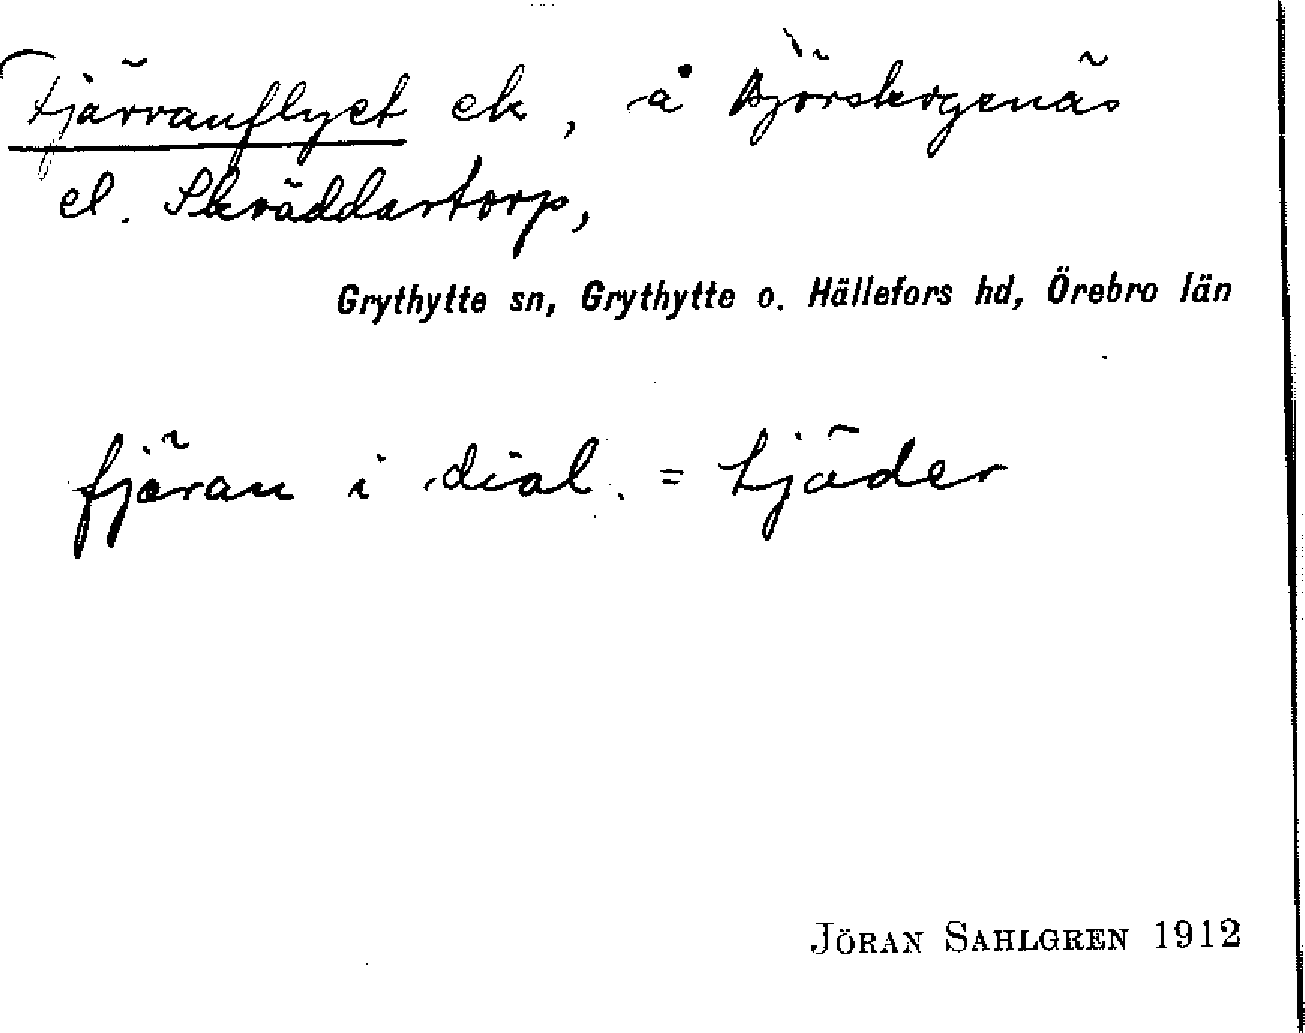 Tjärranflyet ek, å Björskogsnäs
el. Skräddartorp,
Grythytte sn, Grythytte o. Hällefors hd, Örebro län
fjäran i dial. = tjäder
JÖRAN SAHLGREN 1912